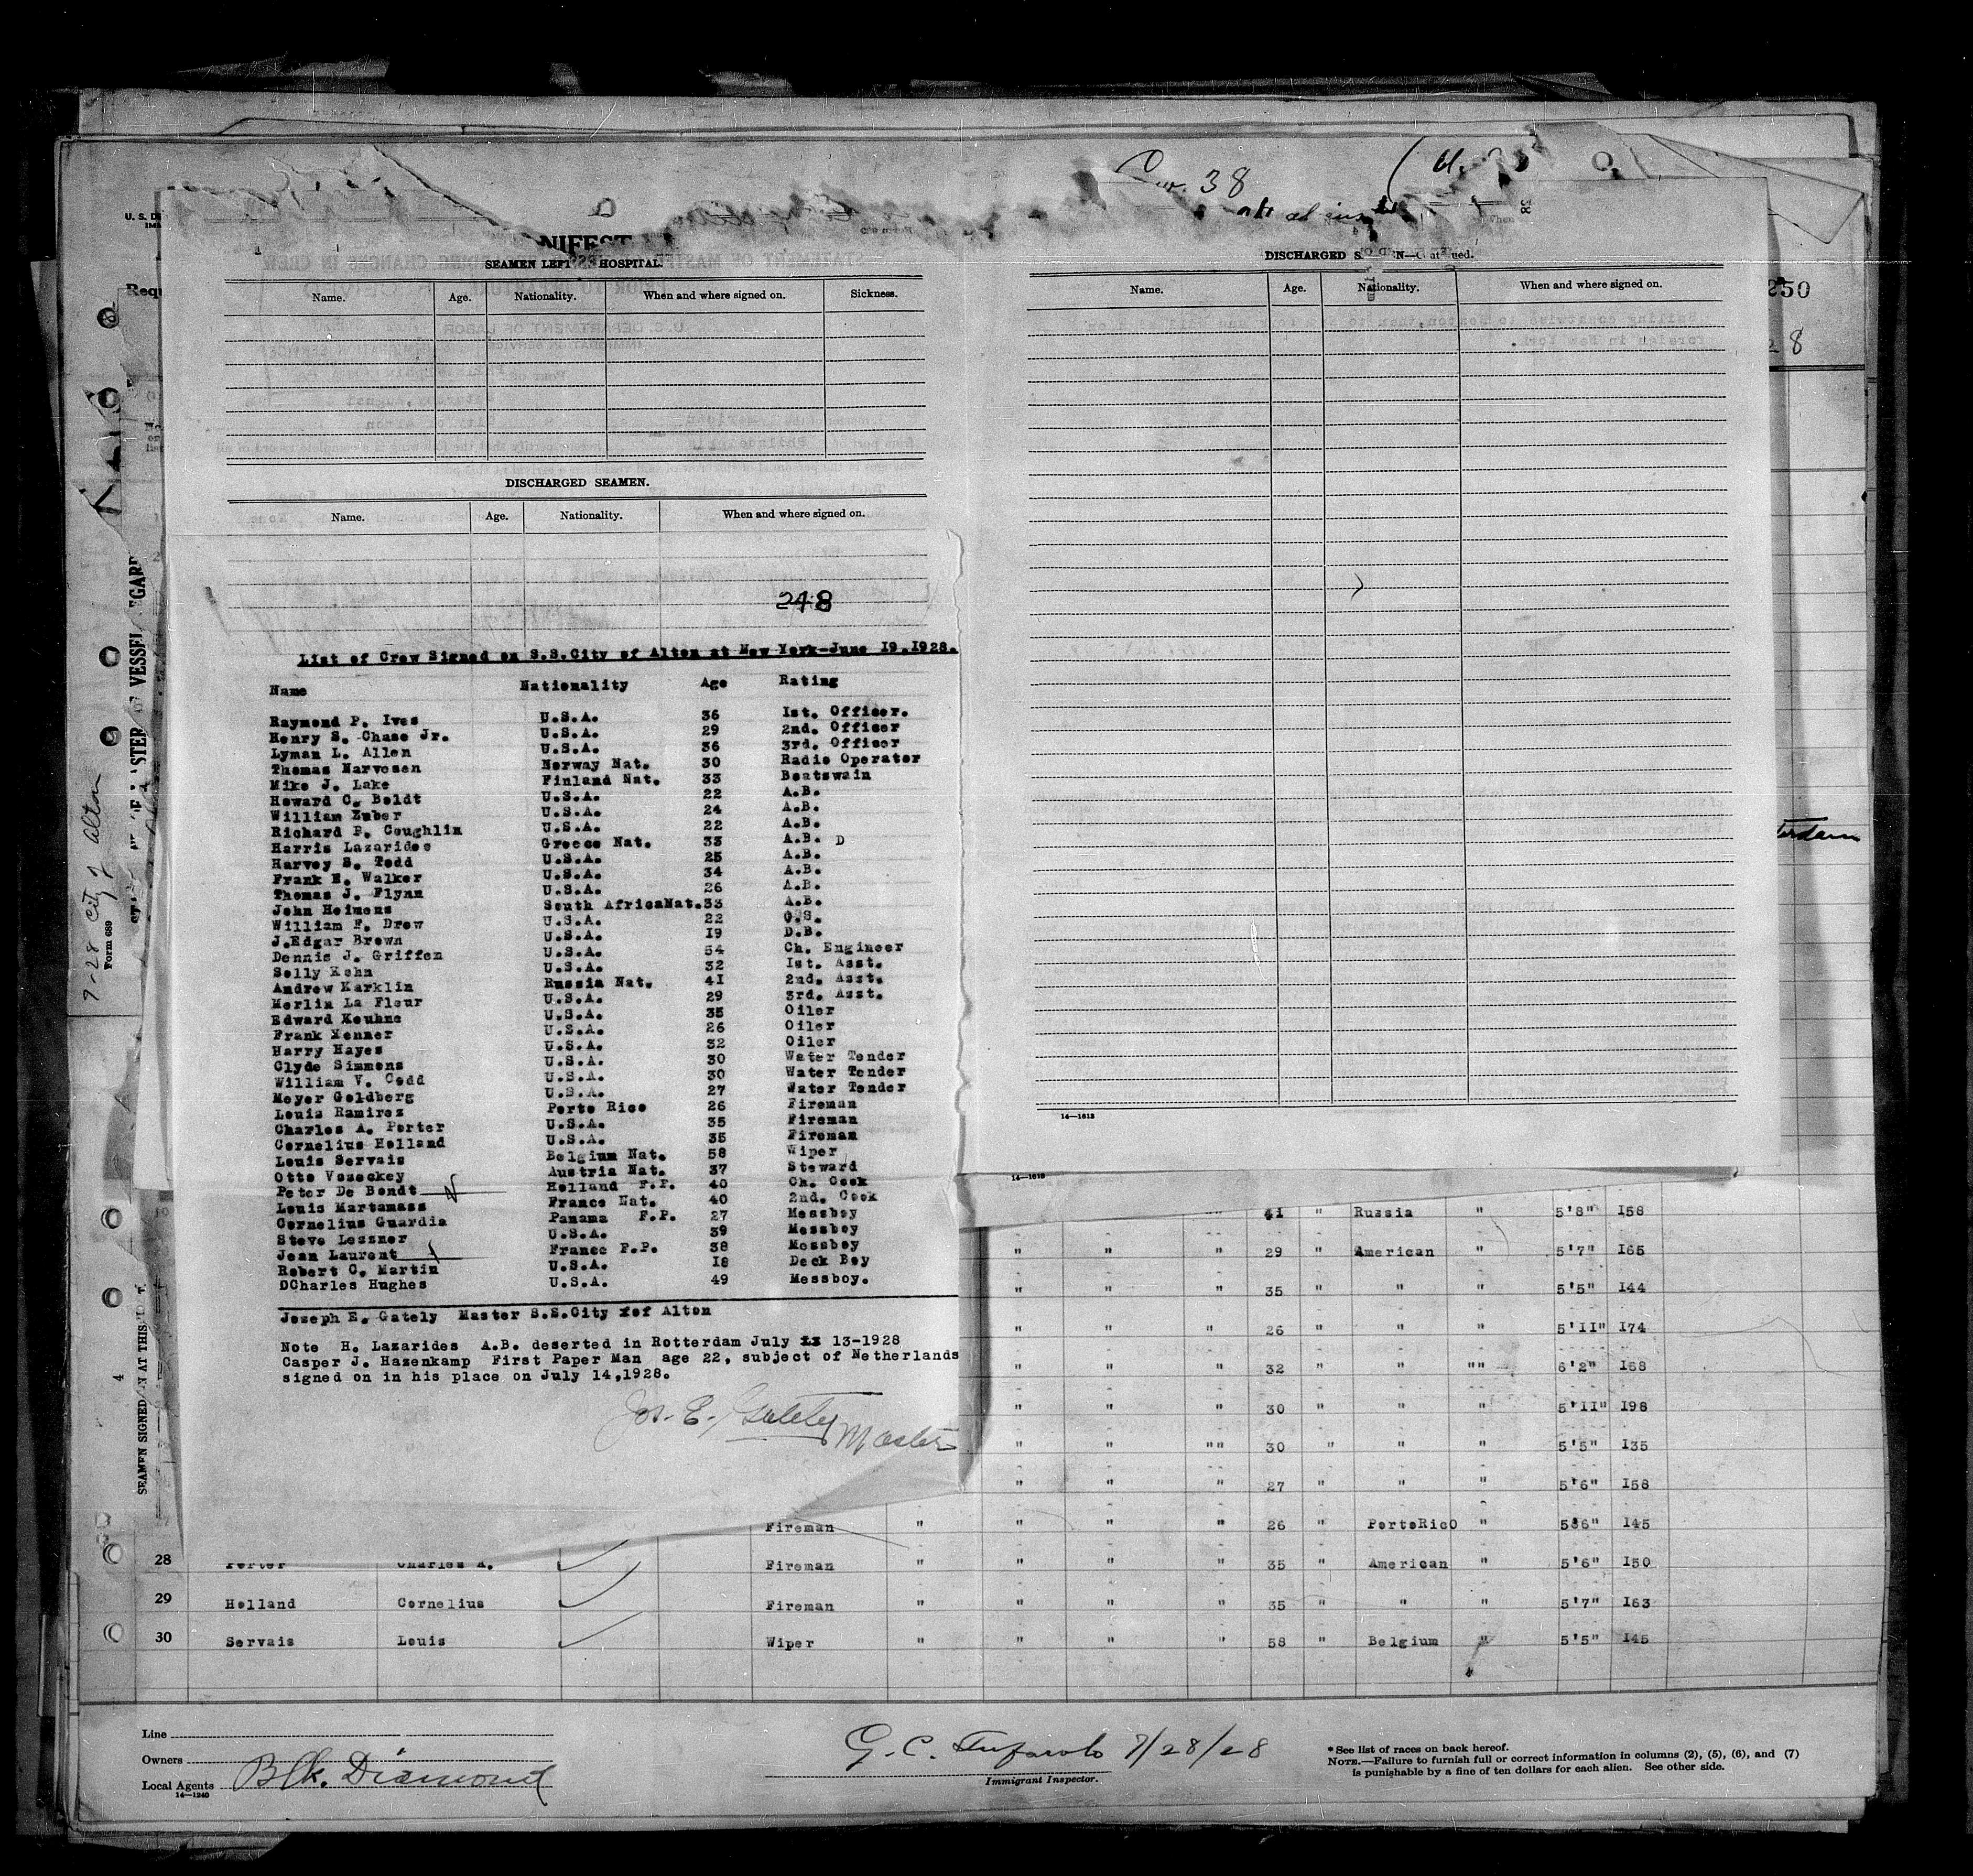 Cur. 38
SEAMEN LEFT HOSPITAL.
Name. Age. Nationality. When and where signed on. Sickness.
DISCHARGED SEAMEN.
Name. Age. Nationality. When and where signed on.
248
List of Crew Signed on S.S.City of Alton at New York-June I9.I928.
Name Nationality Age Rating
Raymond P. Ives U.S.A. 36 Ist. Officer.
Henry S. Chase Jr. U.S.A. 29 2nd. Officer
Lyman L. Allen U.S.A. 36 3rd. Officer
Thomas Narvosen Norway Nat. 30 Radio Operator
Mike J. Lake Finland Nat. 33 Boatswain
Howard C. Boldt U.S.A. 22 A.B.
William Zuber U.S.A. 24 A.B.
Richard P. Coughlin U.S.A. 22 A.B.
Harris Lazarides Greece Nat. 33 A.B. D
Harvey S. Todd U.S.A. 25 A.B.
Frank E. Walker U.S.A. 34 A.B.
Thomas J. Flynn U.S.A. 26 A.B.
John Heimens South AfricaNat. 33 A.B.
William F. Drew U.S.A. 22 O.S.
J.Edgar Brown U.S.A. I9 D.B.
Dennis J. Griffen U.S.A. 54 Ch. Engineer
Solly Kohn U.S.A. 32 Ist. Asst.
Andrew Karklin Russia Nat. 4I 2nd. Asst.
Merlin La Fleur U.S.A. 29 3rd. Asst.
Edward Keuhne U.S.A. 35 Oiler
Frank Xenner U.S.A. 26 Oiler
Harry Hayes U.S.A. 32 Oiler
Clyde Simmons U.S.A. 30 Water Tender
William V. Codd U.S.A. 30 Water Tender
Meyer Goldberg U.S.A. 27 Water Tender
Louis Ramirez Porto Rico 26 Fireman
Charles A. Porter U.S.A. 35 Fireman
Cornelius Holland U.S.A. 35 Fireman
Louis Servais Belgium Nat. 58 Wiper
Otto Veseckey Austria Nat. 37 Steward
Peter De Bondt Holland F.P. 40 Ch. Cook
Louis Martamass France Nat. 40 2nd. Cook
Cornelius Guardia Panama F.P. 27 Messboy
Steve Lessner U.S.A. 39 Messboy
Jean Laurent France F.P. 38 Messboy
Robert C. Martin U.S.A. I8 Deck Boy
DCharles Hughes U.S.A. 49 Messboy.
Joseph E. Gately Master S.S.City xof Alton
Note H. Lazarides A.B. deserted in Rotterdam July 13-1928
Casper J. Hazenkamp First Paper Man age 22, subject of Netherlands
signed on in his place on July 14,1928.
Jos. E. Gately Master
DISCHARGED SEAMEN—Continued.
Name. Age. Nationality. When and where signed on.
14—1613
14—1613
250
8
terdam
7-28 City of Alton
Form 689
4
SEAMEN SIGNED ON AT THIS
" 4I " Russia " 5'8" I58
" " " 29 " American " 5'7" I65
" " " 35 " " " 5'5" I44
" " " 26 " " " 5'II" I74
" " " 32 " " "" 6'2" I68
" " " 30 " " " 5'II" I98
" " "" 30 " " " 5'5" I35
" " " 27 " " " 5'6" I58
Fireman " " " " 26 " PortoRicO " 586" I45
28 Porter Charles A. Fireman " " " " 35 " American " 5'6" I50
29 Holland Cornelius Fireman " " " " 35 " " " 5'7" I63
30 Servais Louis Wiper " " " " 58 " Belgium " 5'5" I45
Line
Owners
Local Agents Blk. Diamond
14—1240
G. C. 7/28/28
Immigrant Inspector.
* See list of races on back hereof.
NOTE.—Failure to furnish full or correct information in columns (2), (5), (6), and (7)
is punishable by a fine of ten dollars for each alien. See other side.